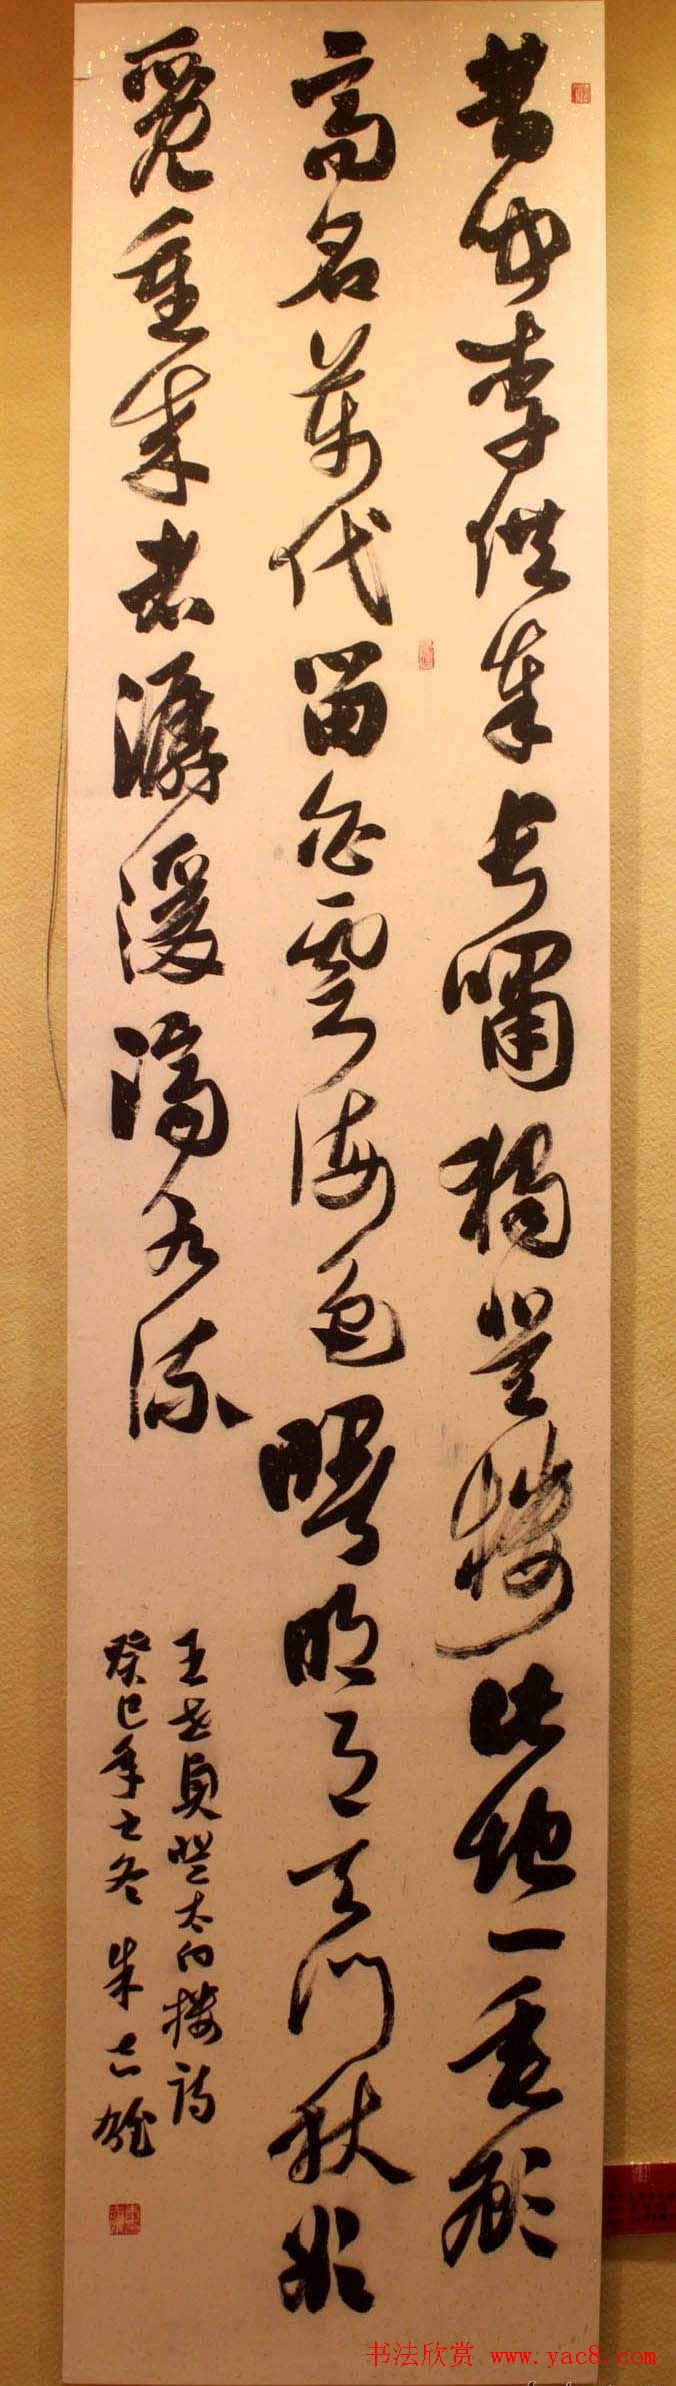 昔闻李供奉长啸独登楼此地一垂顾
高名万代留白云海色曙明月天门秋欲
觅重来者潺湲济水流
王世贞登太白楼诗
癸巳年之冬朱志雄
书法欣赏 www.yac8.com